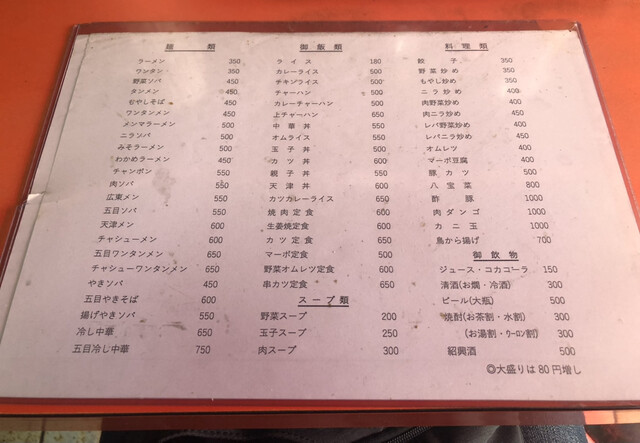 麺類
ラーメン 350
ワンタン 350
野菜ソバ 450
タンメン 450
もやしそば 450
ワンタンメン 450
メンマラーメン 500
ニラソバ 500
みそラーメン 500
わかめラーメン 450
チャンポン 550
肉ソバ 550
広東メン 550
五目ソバ 550
天津メン 600
チャシューメン 600
五目ワンタンメン 650
チャシューワンタンメン 650
やきソバ 450
五目やきそば 600
揚げやきソバ 550
冷し中華 650
五目冷し中華 750
御飯類
ライス 180
カレーライス 500
チキンライス 500
チャーハン 500
カレーチャーハン 500
上チャーハン 650
中華丼 550
オムライス 550
玉子丼 500
カツ丼 600
親子丼 550
天津丼 600
カツカレーライス 650
焼肉定食 600
生姜焼定食 600
カツ定食 650
マーボ定食 500
野菜オムレツ定食 600
串カツ定食 650
スープ類
野菜スープ 200
玉子スープ 250
肉スープ 300
料理類
餃子 350
野菜炒め 350
もやし炒め 350
ニラ炒め 400
肉野菜炒め 400
肉ニラ炒め 450
レバ野菜炒め 400
レバニラ炒め 450
オムレツ 400
マーボ豆腐 400
豚カツ 500
八宝菜 800
酢豚 1000
肉ダンゴ 1000
カニ玉 1000
鳥から揚げ 700
御飲物
ジュース・コカコーラ 150
清酒(お燗・冷酒) 300
ビール(大瓶) 500
焼酎(お茶割・水割) 300
(お湯割・ウーロン割) 300
紹興酒 500
◎大盛りは80円増し